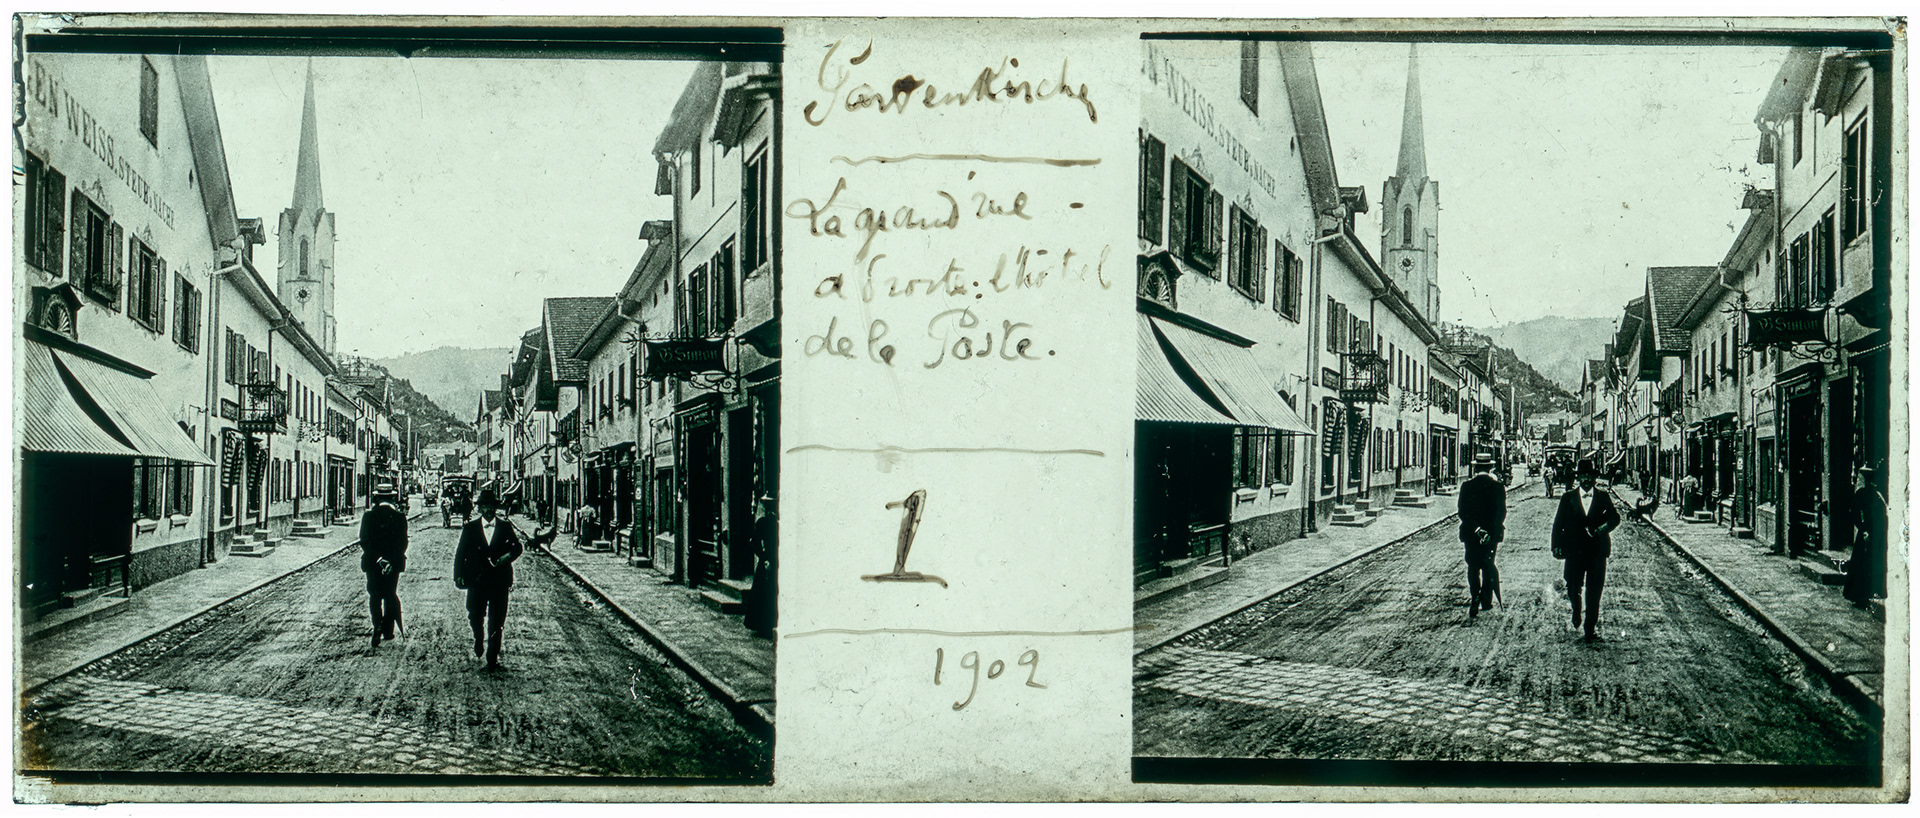 EN WEISS. STEUB'S NACHF.
B. Simon
Partenkirche
La grand'rue -
a droite: l'hôtel
de la Poste.
1
1902
EN WEISS. STEUB'S NACHF.
B. Simon